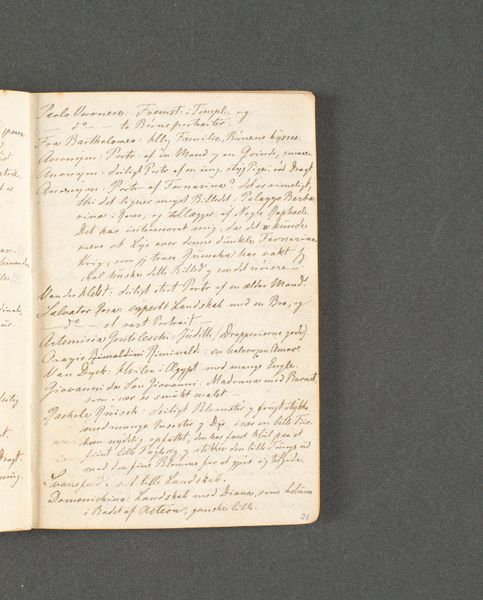 Paolo Veronese: Fremst. i Templ., og
— do — to Börneportraiter.
Fra Bartholomeo: hllg Familie, Börnene kysses.
Anonym: Portr. af en Mand og en Qvinde,
Anonym: deiligt Portr af en ung, Pige i röd Dragt.
Anonym: Portr. af Fornarina? det er rimeligt,
thi det ligner meget Billedet i Palazzo Barbe-
rina i Rom, og tillægges af Nogle Raphael.
Det har interesseret mig, da det kunde
være et Lys over denne dunkle Fornarina
Krig, som jeg troer Rumohr har vakt. Jeg
skal huske dette Billed og see det nöiere. —
Van der Helst: deiligt stort Portr af en ældre Mand.
Salvator Rosa: superbt Landskab med en Bro, og
— do — et rart Portrait. —
Artemisia Gentileschi: Judith, (Drapperierne gode)
Orazio Riminaldi: en halvvoxen Amor
Van Dyck: Hvilen i Ægypt med mange Engle.
Giovanni da San Giovanni: Madonna med Barnet,
som især er smukt malet —
Rachele Ruisch: deiligt Blomster og frugt stykke
med mange Insecter og Dyr, især en lille Fiir-
been nydelig opfattet, den har faaet
fiint lille Fugleæg og stikker den lille Tunge ud
med den fine
Svanefeld: et lille Landskab.
Domenichino: Landskab med Diana, som
i Badet af Acteon, ganske lille.
21